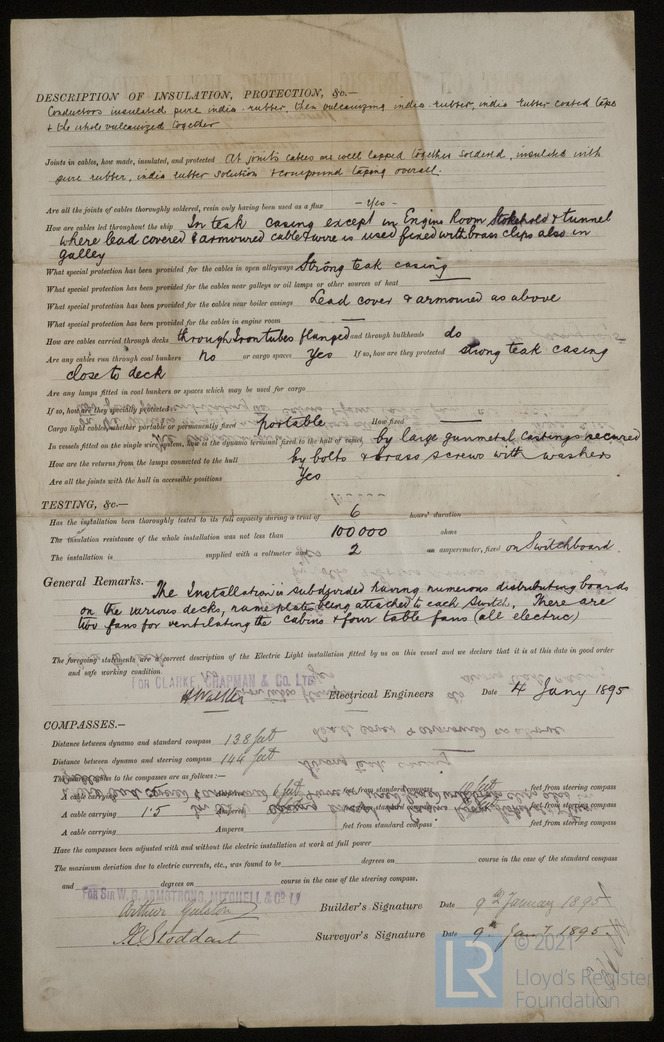 DESCRIPTION OF INSULATION, PROTECTION, &c.—
Conductors insulated pure india-rubber, then vulcanizing india-rubber, india rubber coated tape
& the whole vulcanized together
Joints in cables, how made, insulated, and protected At joints cables are well lapped together soldered, insulated with
pure rubber, india rubber solution & compound taping overall.
Are all the joints of cables thoroughly soldered, resin only having been used as a flux —yes—
How are cables led throughout the ship In teak casing except in Engine Room Stokehold & tunnel
where lead covered & armoured cable & wire is used fixed with brass clips also in
galley
What special protection has been provided for the cables in open alleyways Strong teak casing
What special protection has been provided for the cables near galleys or oil lamps or other sources of heat —
What special protection has been provided for the cables near boiler casings Lead cover & armoured as above
What special protection has been provided for the cables in engine room —
How are cables carried through decks through Iron tubes flanged and through bulkheads do
Are any cables run through coal bunkers no or cargo spaces Yes If so, how are they protected strong teak casing
close to deck
Are any lamps fitted in coal bunkers or spaces which may be used for cargo
If so, how are they specially protected
Cargo light cables, whether portable or permanently fixed portable How fixed —
In vessels fitted on the single wire system, how is the dynamo terminal fixed to the hull of vessel by large gunmetal castings secured
How are the returns from the lamps connected to the hull by bolts & brass screws with washers
Are all the joints with the hull in accessible positions Yes
TESTING, &c.—
Has the installation been thoroughly tested to its full capacity during a trial of 6 hours' duration
The insulation resistance of the whole installation was not less than 100000 ohms
The installation is supplied with a voltmeter and 2 an amperemeter, fixed on Switchboard.
General Remarks.— The Installation is subdivided having numerous distributing boards
on the various decks, name plates being attached to each Switch. There are
two fans for ventilating the cabins & four table fans (all electric)
The foregoing statements are a correct description of the Electric Light installation fitted by us on this vessel and we declare that it is at this date in good order
and safe working condition
FOR CLARKE, CHAPMAN & Co. LTD
Electrical Engineers Date 4 Jany 1895
COMPASSES.—
Distance between dynamo and standard compass 138 feet
Distance between dynamo and steering compass 144 feet
The nearest cables to the compasses are as follows:—
A cable carrying Amperes 6 feet feet from standard compass 10 feet feet from steering compass
A cable carrying 1.5 Amperes feet from standard compass feet from steering compass
A cable carrying Amperes feet from standard compass feet from steering compass
Have the compasses been adjusted with and without the electric installation at work at full power
The maximum deviation due to electric currents, etc., was found to be degrees on course in the case of the standard compass
and degrees on course in the case of the steering compass.
FOR SIR W. G. ARMSTRONG, MITCHELL & Co LD
Arthur Builder's Signature Date 9th January 1895
Stoddart Surveyor's Signature Date 9th Jany 1895.
LR
© 2021
Lloyd's Register
Foundation